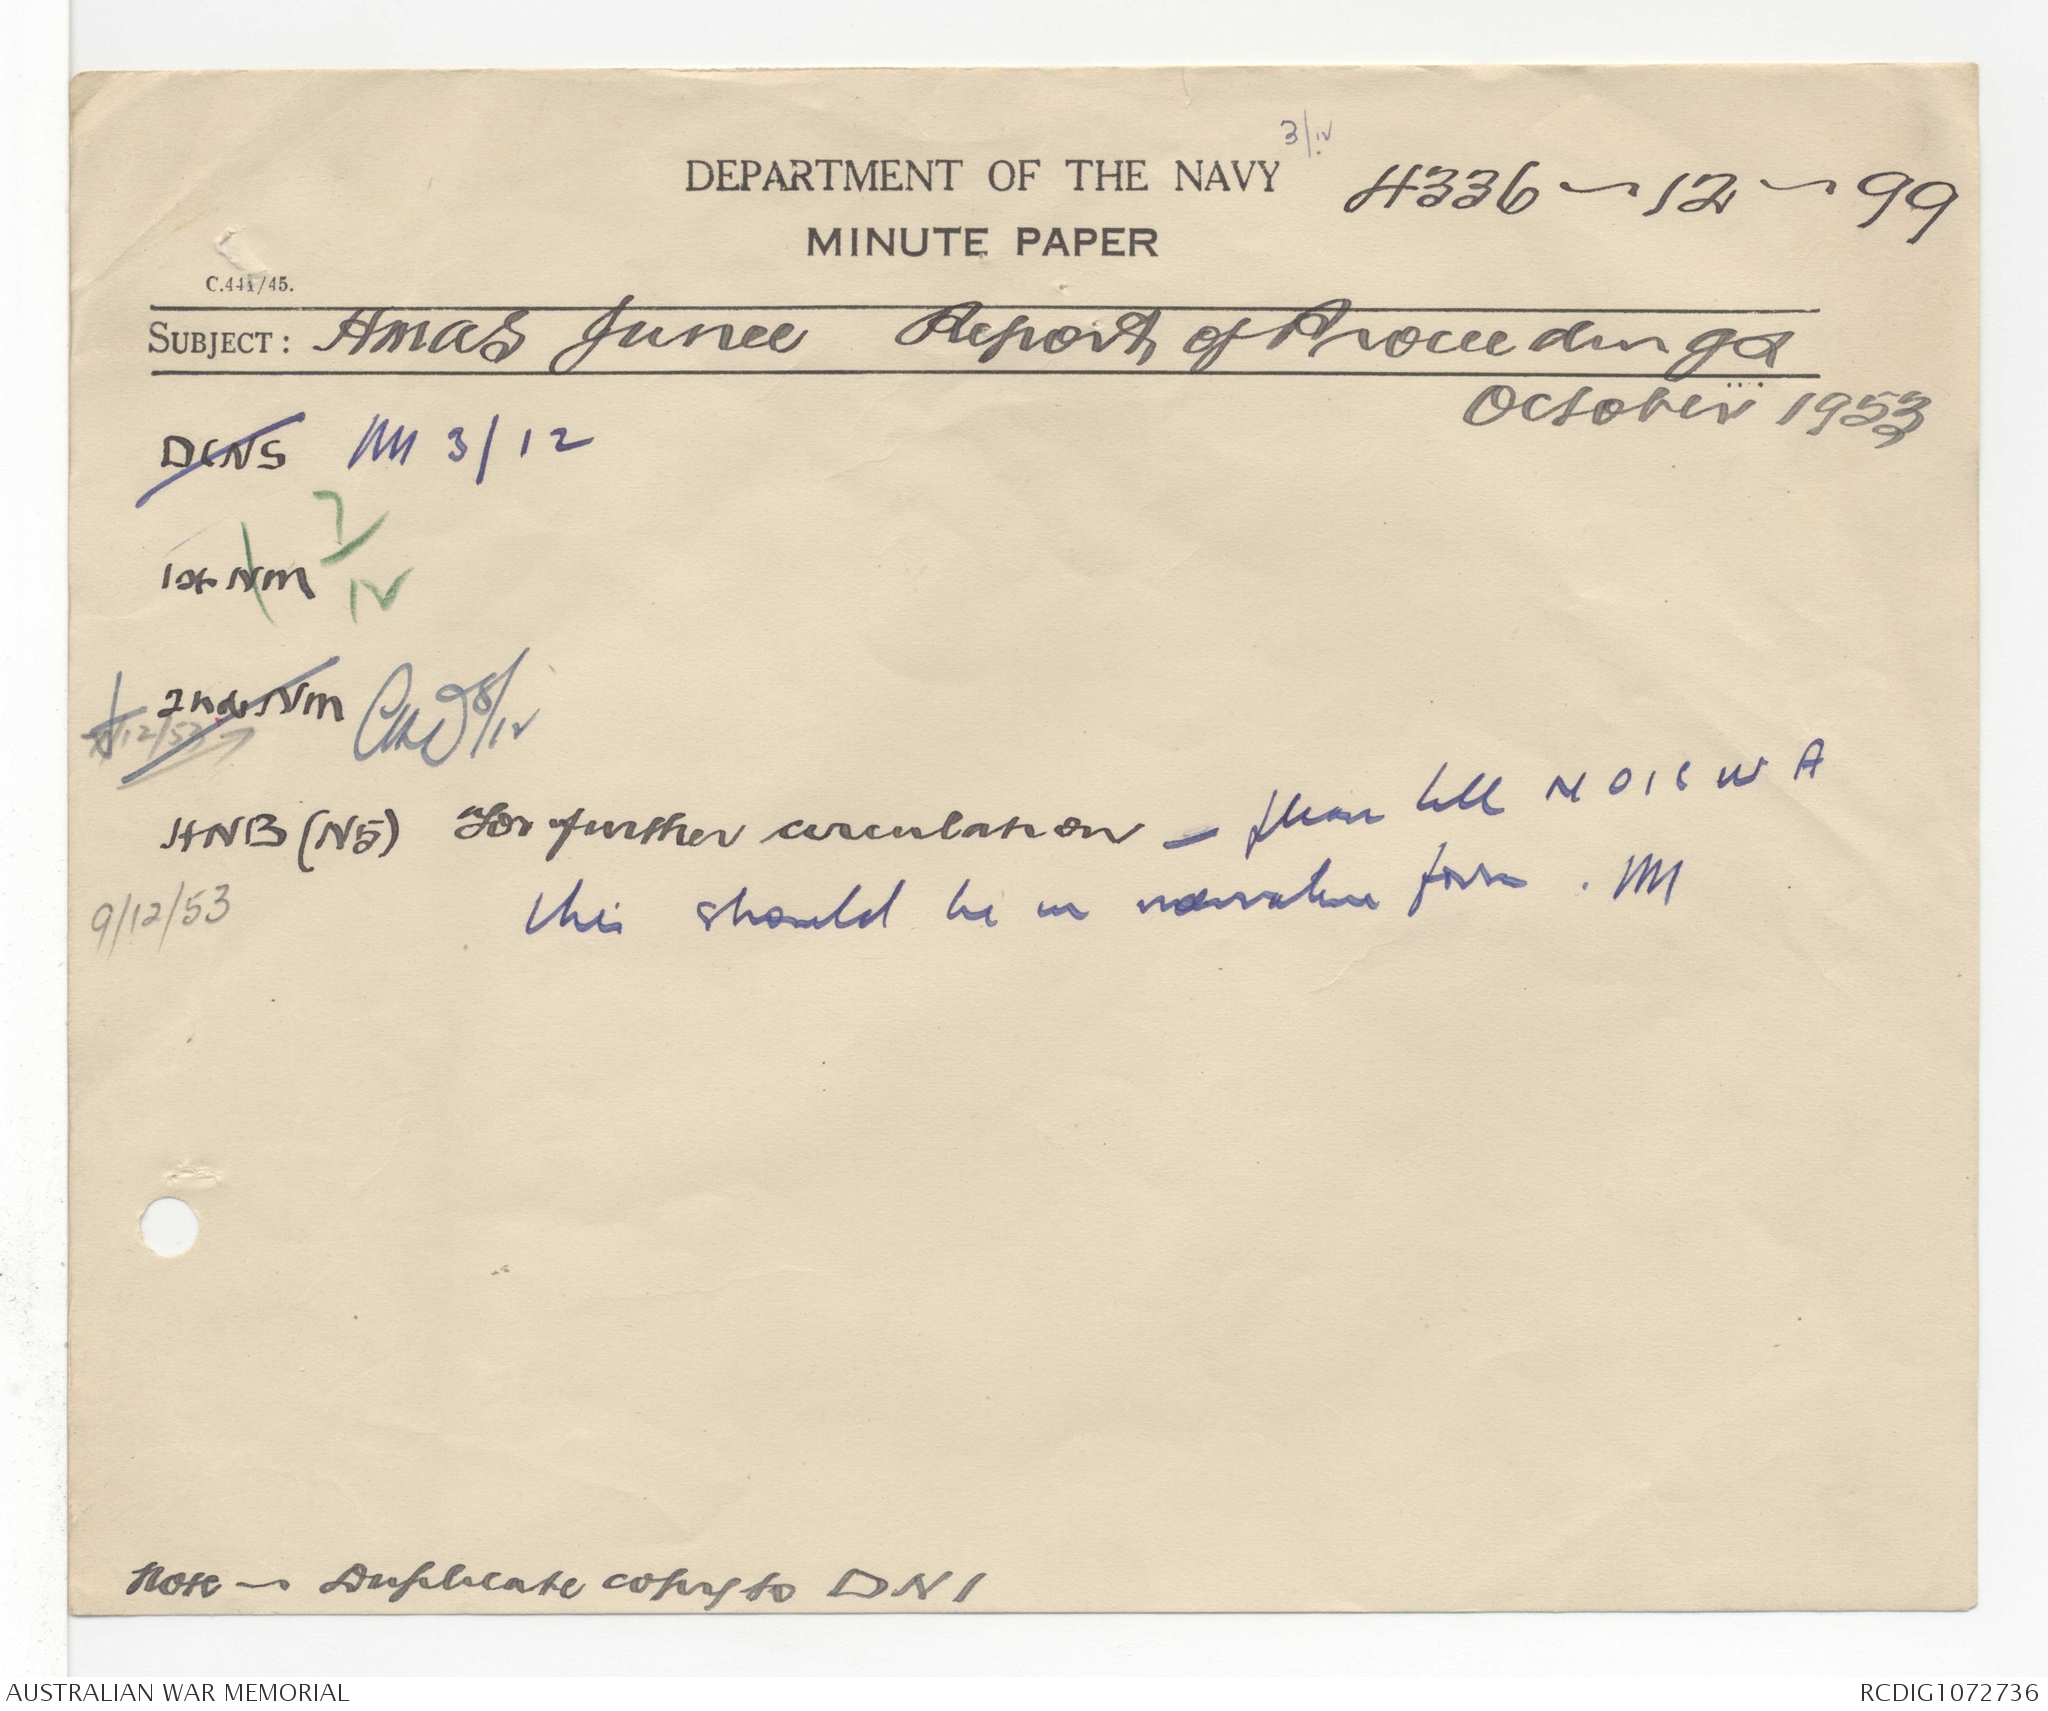 3/12
DEPARTMENT OF THE NAVY
4336~12~99
MINUTE PAPER
C.441/45.
SUBJECT: HMAS Junee Report of Proceedings
October 1953
DCNS 3/12
1st NM 7/12
2nd NM 8/12
12/53
HNB (N5) For further circulation - please tell NOICWA
this should be in narrative form.
9/12/53
Note ~ Duplicate copy to DNI
AUSTRALIAN WAR MEMORIAL
RCDIG1072736